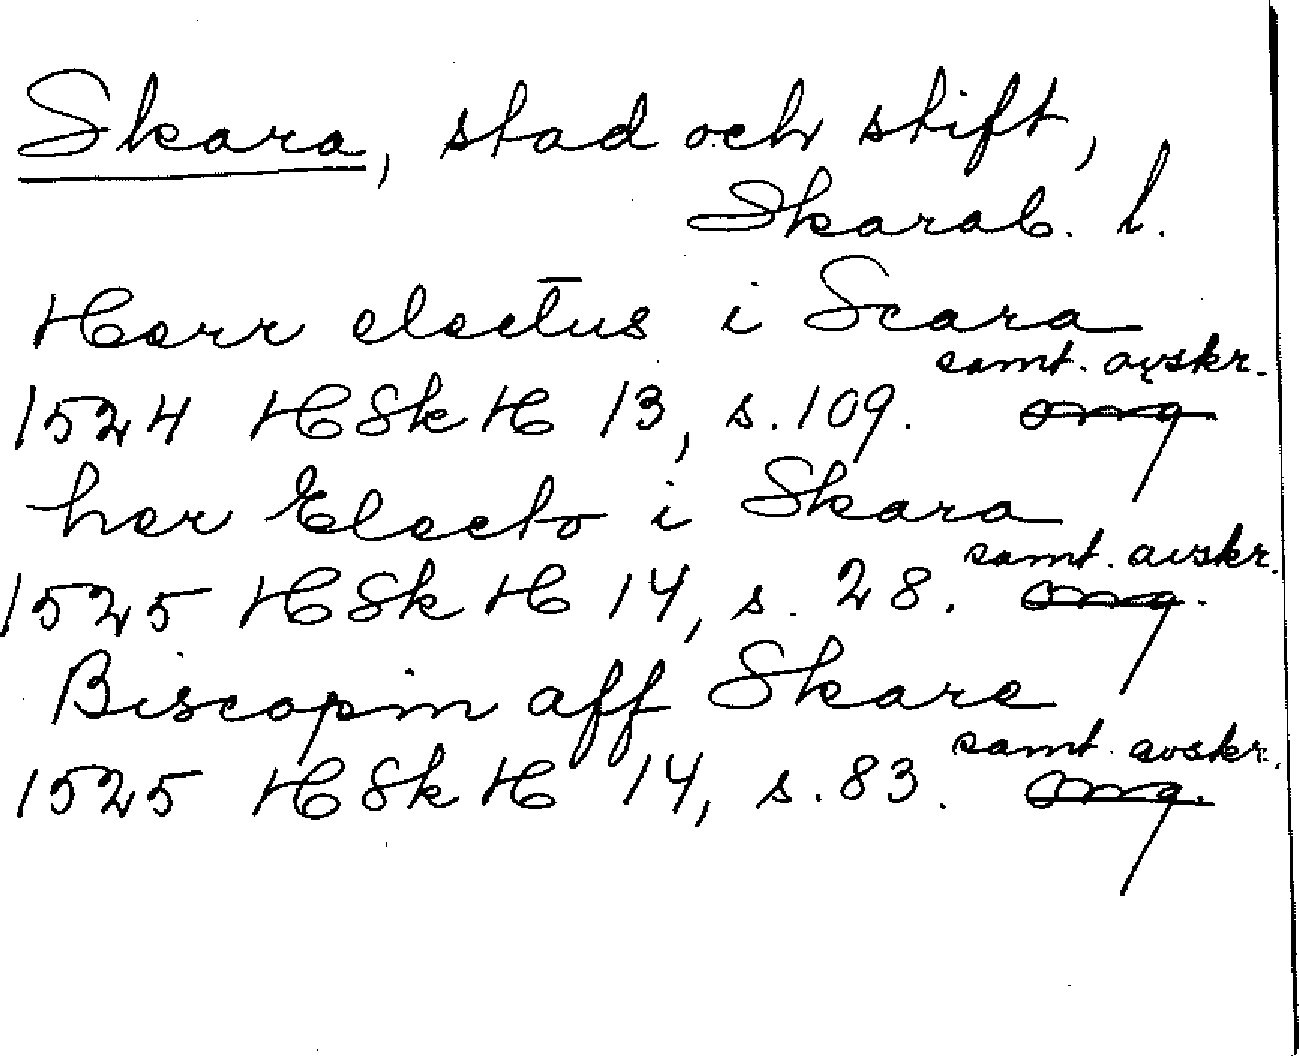 Skara, stad och stift,
Skarab. l.
Herr electus i Scara
samt. avskr.
1524 HSkH 13, s. 109. mq
her Electo i Skara
samt. avskr.
1525 HSkH 14, s. 28. mq.
Biscopin aff Skare
samt. avskr.
1525 HSkH 14, s. 83. mq.